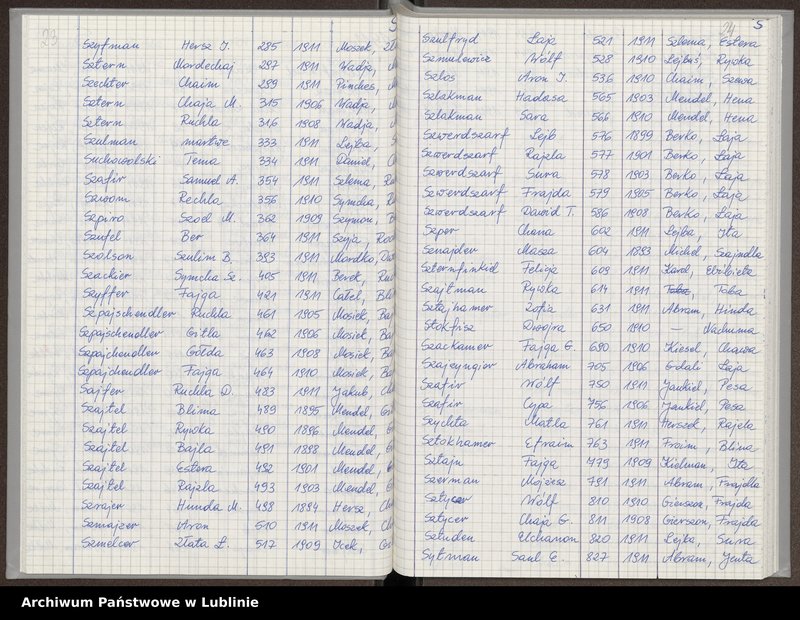 23
Szyfman Hersz J. 285 1911 Moszek,
Sztern Mordechaj 297 1911 Nadja,
Szechter Chaim 299 1911 Pinches,
Sztern Chaja M. 315 1906 Nadja,
Sztern Ruchla 316 1908 Nadja,
Szulman martwe 333 1911 Lejba,
Suchowolski Tema 334 1911 Daniel,
Szafir Samuel A. 354 1911 Szlema,
Szwom Rechla 356 1910 Symcha,
Szpiro Szoel M. 362 1909 Szymon,
Szufel Ber 364 1911 Szyja,
Szolson Szulim B. 393 1911 Mordko,
Szackier Symcha Sz. 405 1911 Berek,
Szyffer Fajga 421 1911 Całel,
Szpajschendler Ruchla 461 1905 Mosiek,
Szpajschendler Gitla 462 1906 Mosiek,
Szpajchendler Gołda 463 1908 Mosiek,
Szpajchendler Fajga 464 1910 Mosiek,
Szajfer Ruchla D. 483 1911 Jakub,
Szajtel Blima 489 1895 Mendel,
Szajtel Rywka 490 1896 Mendel,
Szajtel Bajla 491 1898 Mendel,
Szajtel Estera 492 1901 Mendel,
Szajtel Rajzla 493 1903 Mendel,
Szrajer Hunda M. 498 1894 Hersz,
Szmajzer Aron 510 1911 Moszek,
Szmelcer Złata Ł. 517 1909 Icek,
24 S
Szulfryd Łaja 521 1911 Szlema, Estera
Szmulewicz Wólf 528 1910 Lejbuś, Rywka
Szlos Aron J. 536 1910 Chaim, Szewa
Szlakman Hadasa 565 1903 Mendel, Hena
Szlakman Sara 566 1910 Mendel, Hena
Szwerdszarf Lejb 576 1899 Berko, Łaja
Szwerdszarf Rajzla 577 1901 Berko, Łaja
Szwerdszarf Sura 578 1903 Berko, Łaja
Szwerdszarf Frajda 579 1905 Berko, Łaja
Szwerdszarf Dawid T. 586 1908 Berko, Łaja
Szper Chana 602 1911 Lejba, Ita
Sznajder Masza 604 1893 Michel, Szajndla
Szternfinkiel Felicja 609 1911 Karol, Elżbieta
Szajtman Rywka 614 1911 Taba
Sztajhamer Zofia 631 1911 Abram, Hinda
Stokfisz Dwojra 650 1910 — Nachuma
Szackamer Fajga G. 690 1910 Kiesel, Chawa
Szajeyngior Abraham 705 1906 Gdali Łaja
Szafir Wólf 750 1911 Jankiel, Pesa
Szafir Cypa 756 1906 Jankiel, Pesa
Szychta Matla 761 1911 Herszek, Rajzla
Sztokhamer Efraim 763 1911 Froim, Blima
Sztajn Fajga 779 1909 Kielman, Ita
Szerman Mojżesz 791 1911 Abram, Frajdla
Sztycer Wólf 810 1910 Gierszon, Frajda
Sztycer Chaja G. 811 1908 Gierszon, Frajda
Sztuden Elchanon 820 1911 Lejba, Sura
Sytman Saul E. 827 1911 Abram, Jenta
Archiwum Państwowe w Lublinie